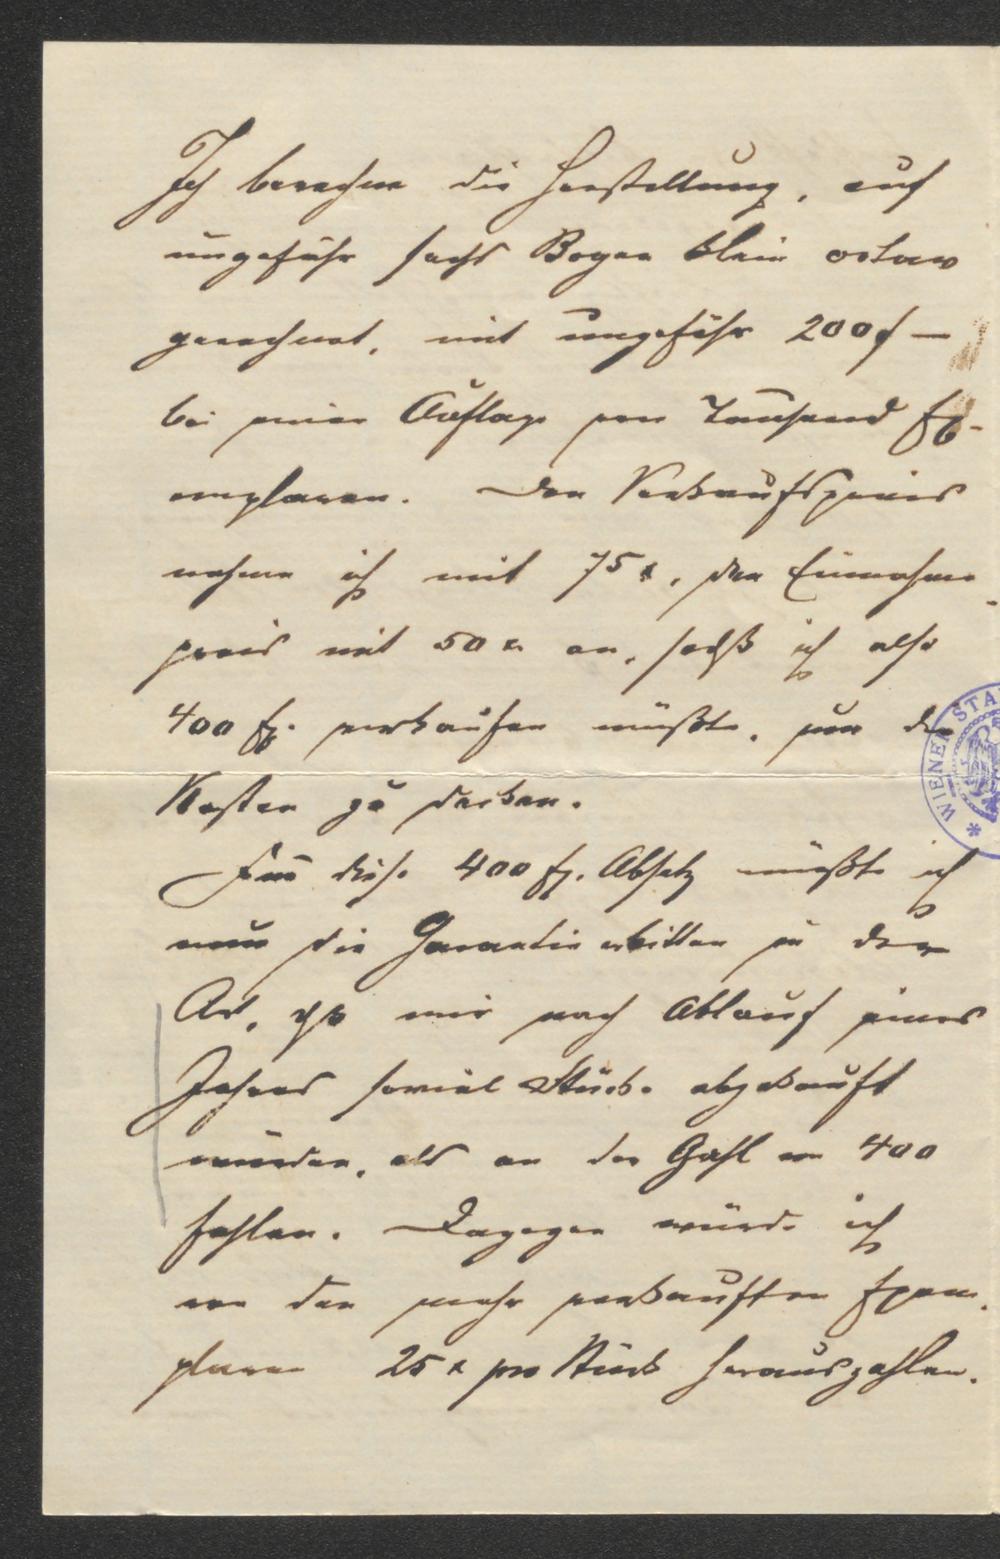 Ich berechne die Herstellung, auf
ungefähr sechs Bogen klein octav
gerechnet, mit ungefähr 200 f —
bei einer Auflage von Tausend Ex-
emplaren. Den Verkaufspreis
nehme ich mit 75 x, den Einnahme
preis mit 50 x an, sodaß ich also
400 Ex. verkaufen müßte, um die
Kosten zu decken.
Für diese 400 Ex. Absatz müßte ich
nun die Garantie erbitten in der
Art, daß mir nach Ablauf eines
Jahres soviel Stücke abgekauft
würden, als an der Zahl von 400
fehlen. Dagegen würde ich
von den mehr verkauften Exem-
plaren 25 x pro Stück herauszahlen.
WIENER STA